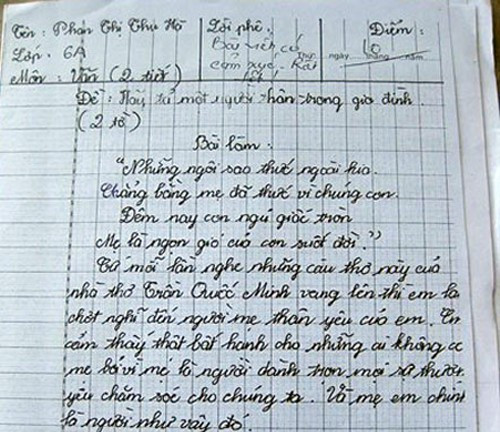 Tên : Phan Thị Thu Hà Lời phê : Điểm :
Lớp : 6A Bài viết có 10
cảm xúc. Rất Thứ ngày tháng năm
Môn : Văn (2 tiết) tốt!
Đề : Hãy tả một người thân trong gia đình.
(2 tờ)
Bài làm :
"Những ngôi sao thức ngoài kia
Chẳng bằng mẹ đã thức vì chúng con.
Đêm nay con ngủ giấc tròn
Mẹ là ngọn gió của con suốt đời."
Cứ mỗi lần nghe những câu thơ này của
nhà thơ Trần Quốc Minh vang lên thì em lại
chợt nghĩ đến người mẹ thân yêu của em. Em
cảm thấy thật bất hạnh cho những ai không có
mẹ bởi vì mẹ là người dành trọn mọi sự thương
yêu chăm sóc cho chúng ta. Và mẹ em chính
là người như vậy đó.